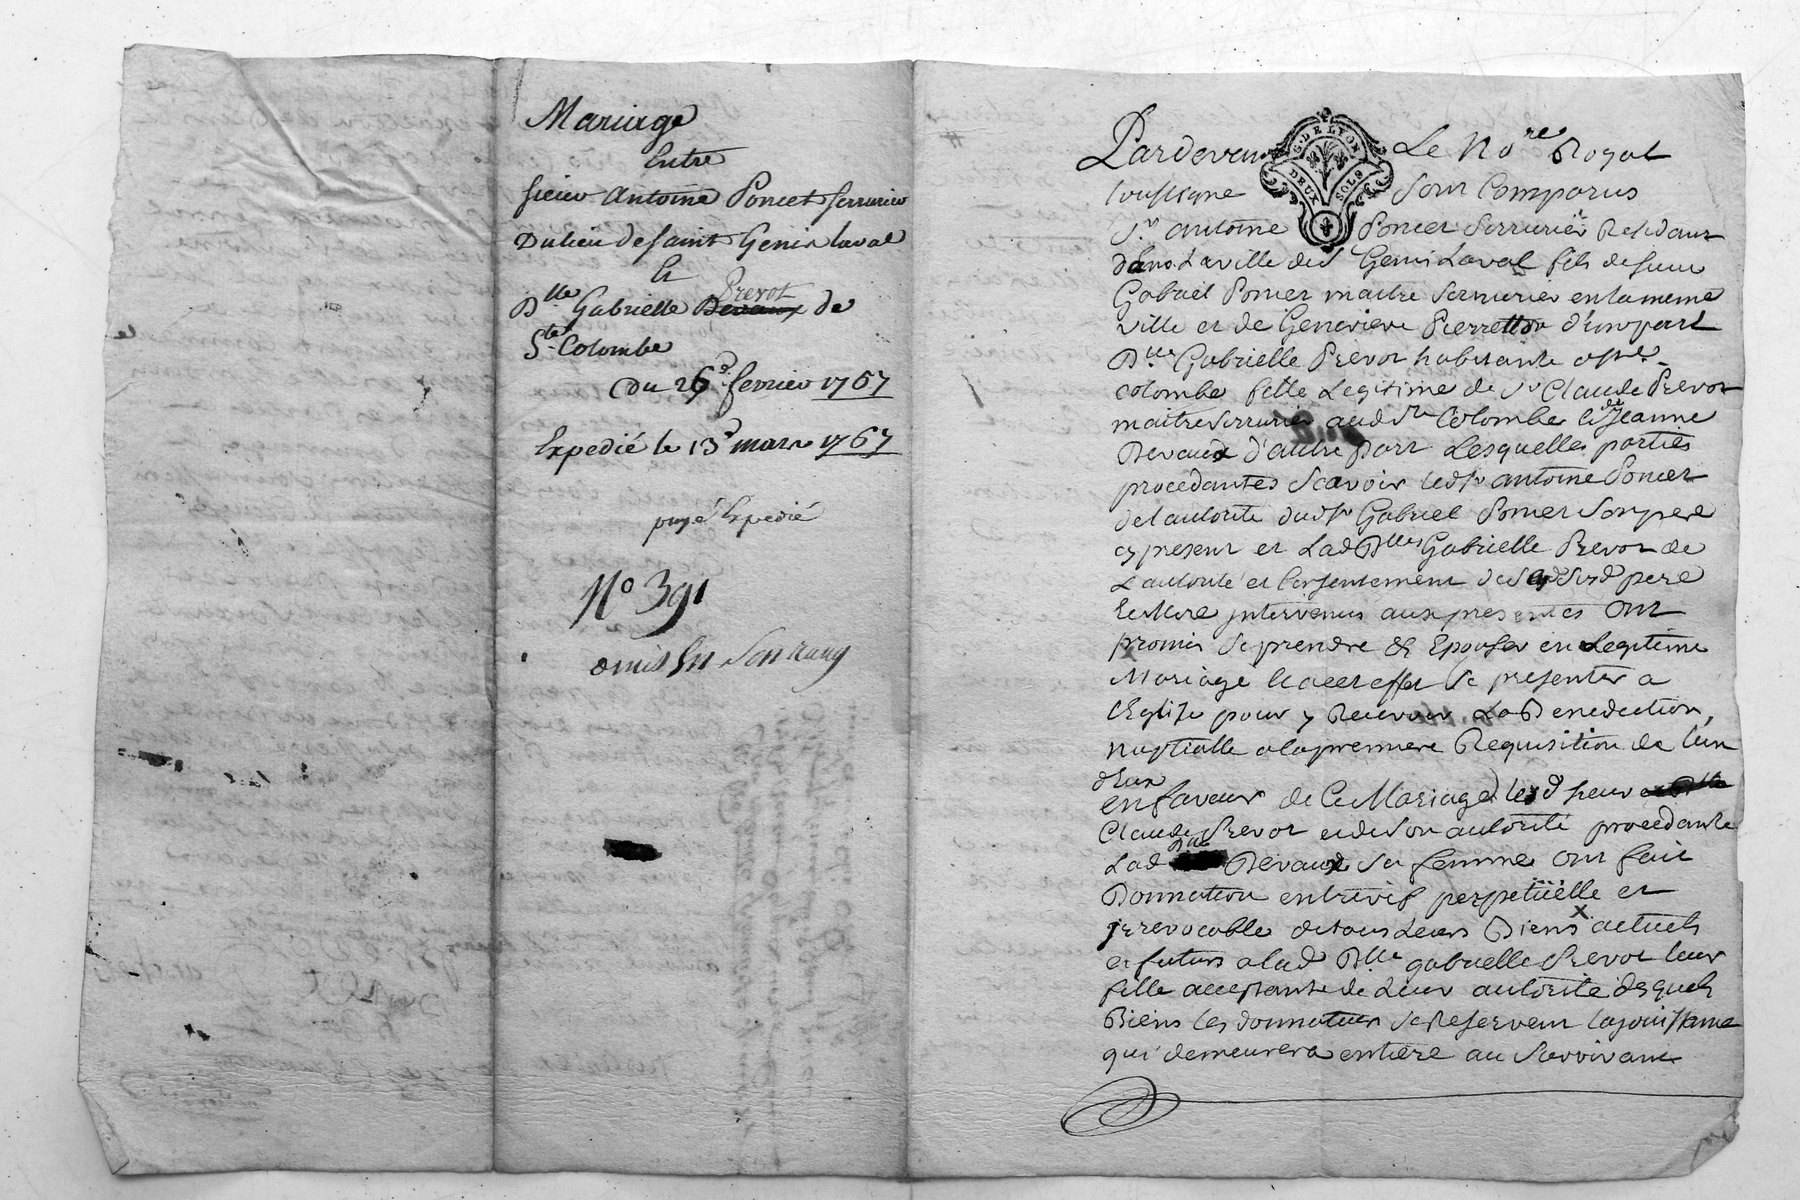 Mariage
Entre
sieur Antoine Poncet serrurier
Du lieu de saint Genis laval
Et
Prevot
Dlle Gabrielle Devaux de
Ste Colombe
Du 26 fevrier 1767
Expedié le 13 mars 1767
payé Expedié
No 391
omis En Son rang
Pardevant Le Nore Royal
soussigné Sont Comparus
G. DE LYON
DEUX SOLS
Sr antoine Poncet Serrurier Residant
dans La ville de St Genis Laval fils de sieur
Gabriel Poncet maitre serrurier en la meme
ville et de Genevieve Pierretton d'une part
Dlle Gabrielle Prevot habitante a Ste
colombe fille Legitime de Sr Claude Prevot
maitre Serrurier aud Ste Colombe et de Jeanne
Devaux d'autre part Lesquelles parties
procedantes Scavoir led Sr antoine Poncet
de l'autorité dud Sr Gabriel Poncet Son pere
cy present et Lad Dlle Gabrielle Prevot de
L'autorité et Consentement de Sesd pere
et Mere intervenus aux presentes Ont
promis Se prendre & Epouser en Legitime
Mariage Et a cet effet Se presenter a
L'Eglise pour y Recevoir La Benediction
nuptialle a la premiere Requisition de L'un
d'Eux
en faveur de Ce Mariage led sieur
Claude Prevot et de son autorité procedante
Lad Dlle Devaux Sa femme Ont fait
Donnation entrevif perpetuëlle et
jrrevocable de tous Leurs Biens actuels
et futurs a lad Dlle gabrielle Prevot leur
fille acceptante de Leur autorité desquels
Biens Les donnateurs Se Reservent la jouissance
qui demeurera entiere au Survivant